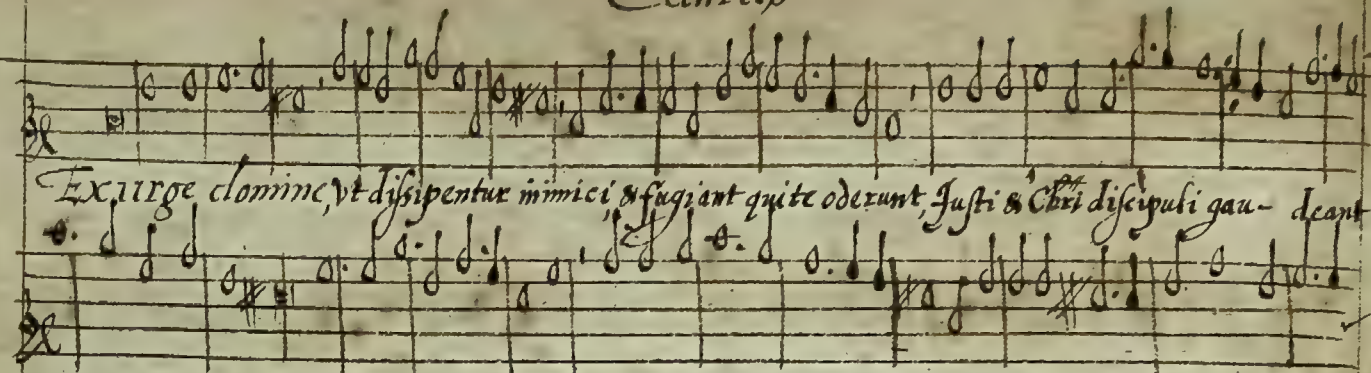 Exurge domine, vt dissipentur inimici, & fugiant qui te oderunt, Justi & Chri discipuli gau- deant